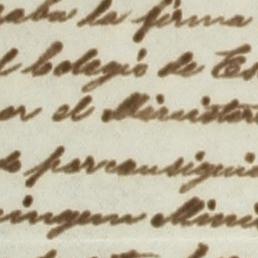 aba la firma
l Colegio de Es
or el Minister
do por consigui
ningun Mini